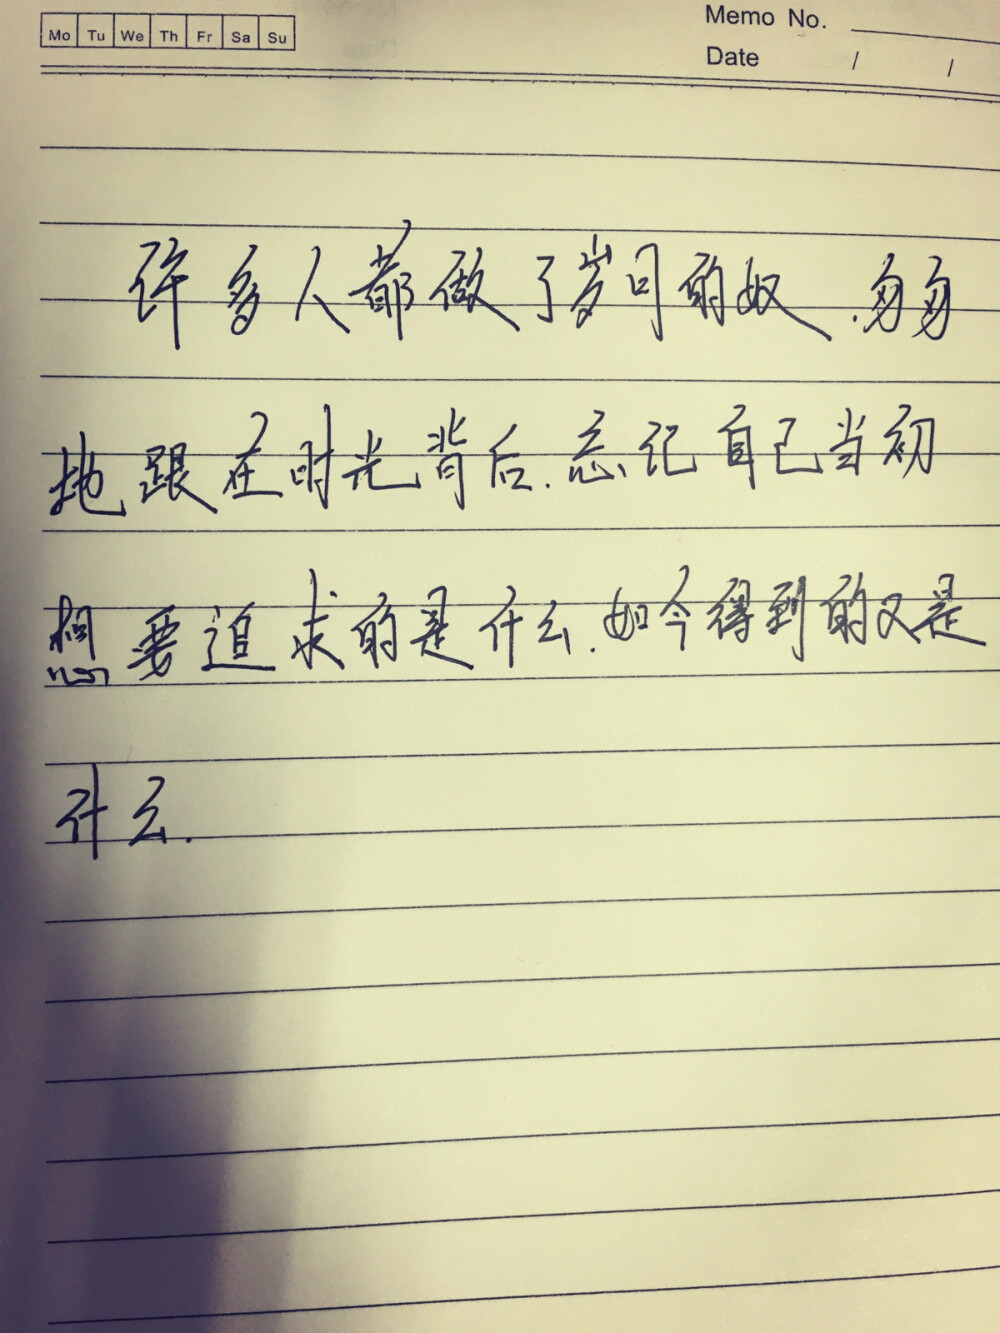 Mo Tu We Th Fr Sa Su
Memo No.
Date / /
许多人都做了岁月的奴.匆匆
地跟在时光背后.忘记自己当初
想要追求的是什么.如今得到的又是
什么.